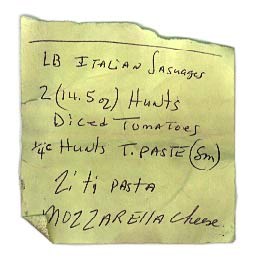 LB ITALIAN SASUAGES
2 (14.5oz) HUNTS
DICED TOMATOES
1/4c HUNTS T. PASTE (Sm)
Ziti PASTA
MOZZARELLA Cheese